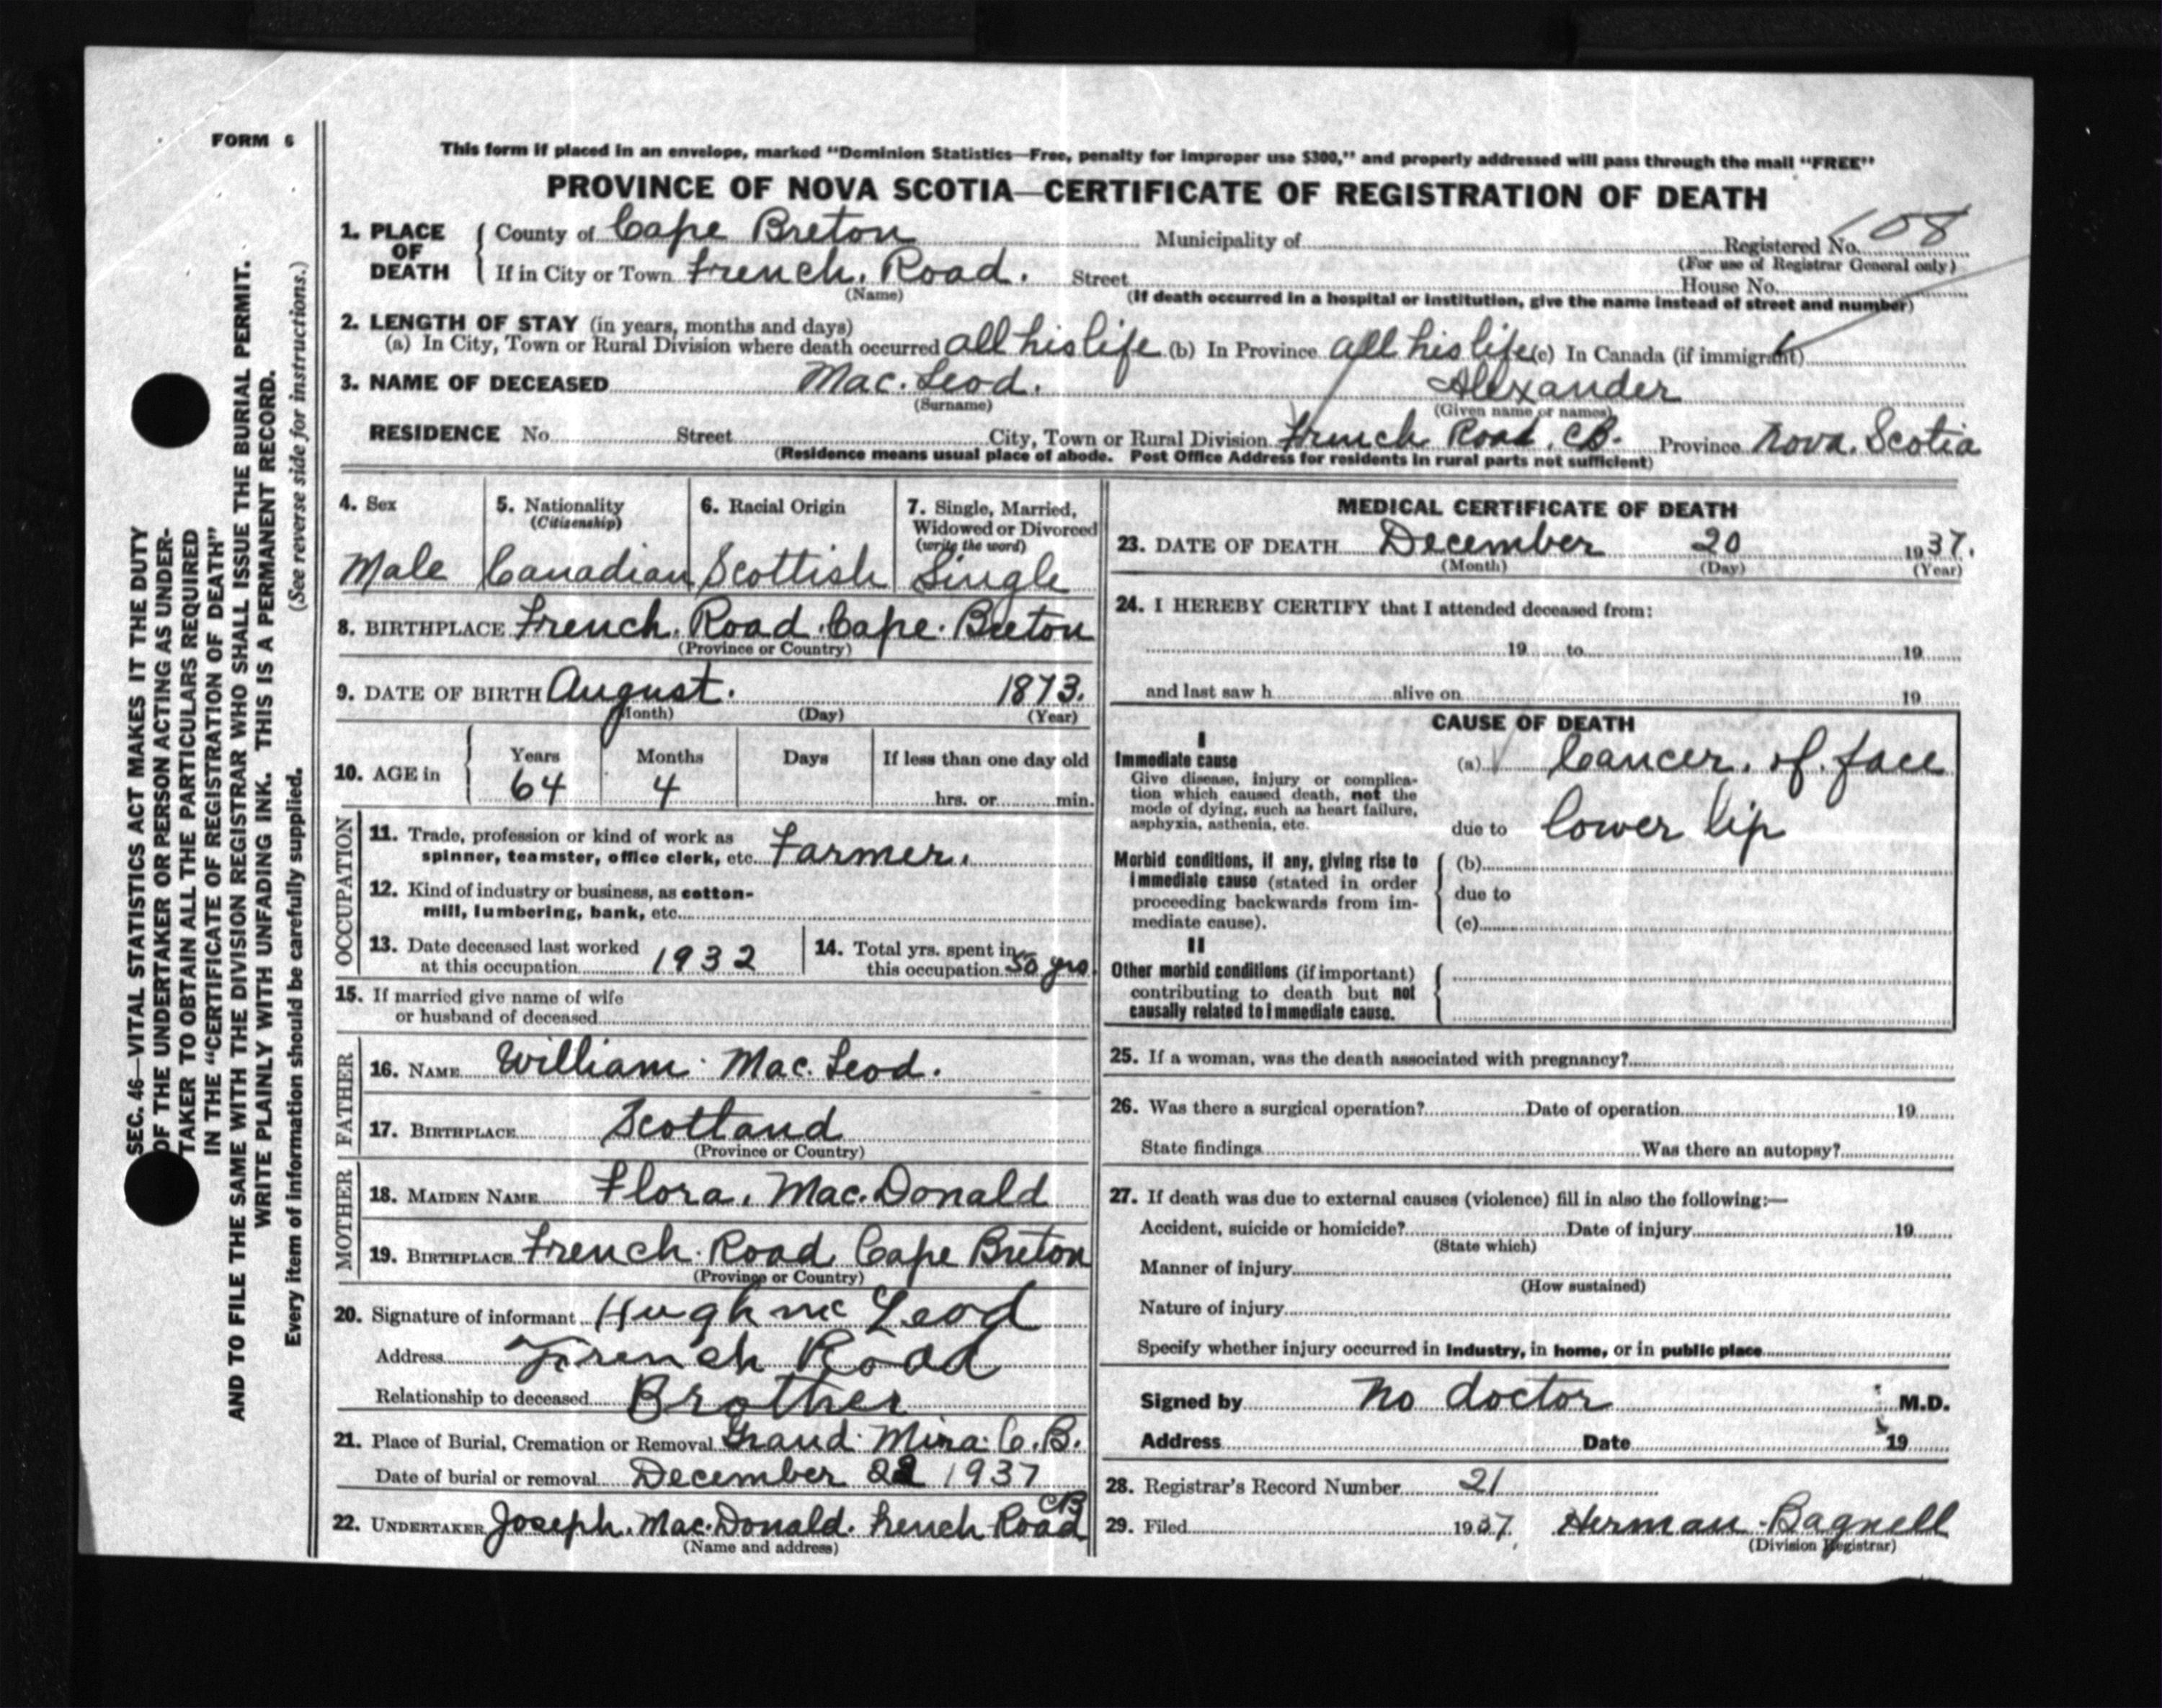 FORM 6
This form if placed in an envelope, marked "Dominion Statistics—Free, penalty for improper use $300," and properly addressed will pass through the mail "FREE"
PROVINCE OF NOVA SCOTIA—CERTIFICATE OF REGISTRATION OF DEATH
1. PLACE OF DEATH
County of Cape Breton Municipality of Registered No. 108
(For use of Registrar General only)
If in City or Town French. Road. Street House No.
(Name) (If death occurred in a hospital or institution, give the name instead of street and number)
2. LENGTH OF STAY (in years, months and days)
(a) In City, Town or Rural Division where death occurred all his life (b) In Province all his life (c) In Canada (if immigrant)
3. NAME OF DECEASED Mac. Leod. Alexander
(Surname) (Given name or names)
RESIDENCE No. Street City, Town or Rural Division French Road. CB. Province Nova. Scotia
(Residence means usual place of abode. Post Office Address for residents in rural parts not sufficient)
4. Sex
Male
5. Nationality
(Citizenship)
Canadian
6. Racial Origin
Scottish
7. Single, Married,
Widowed or Divorced
(write the word)
Single
8. BIRTHPLACE French. Road. Cape. Breton
(Province or Country)
9. DATE OF BIRTH August. 1873.
(Month) (Day) (Year)
10. AGE in
Years Months Days If less than one day old
64 4 hrs. or min.
OCCUPATION
11. Trade, profession or kind of work as
spinner, teamster, office clerk, etc. Farmer.
12. Kind of industry or business, as cotton-
mill, lumbering, bank, etc.
13. Date deceased last worked
at this occupation 1932
14. Total yrs. spent in
this occupation 50 yrs.
15. If married give name of wife
or husband of deceased
FATHER
16. NAME William. Mac. Leod.
17. BIRTHPLACE Scotland
(Province or Country)
MOTHER
18. MAIDEN NAME Flora. Mac. Donald
19. BIRTHPLACE French. Road. Cape Breton
(Province or Country)
20. Signature of informant Hugh mc Leod
Address French Road
Relationship to deceased Brother
21. Place of Burial, Cremation or Removal Grand. Mira. C. B.
Date of burial or removal December 22 1937
22. UNDERTAKER Joseph. Mac. Donald. French Road CB
(Name and address)
MEDICAL CERTIFICATE OF DEATH
23. DATE OF DEATH December 20 1937.
(Month) (Day) (Year)
24. I HEREBY CERTIFY that I attended deceased from:
19 to 19
and last saw h alive on 19
CAUSE OF DEATH
I
Immediate cause
Give disease, injury or complica-
tion which caused death, not the
mode of dying, such as heart failure,
asphyxia, asthenia, etc.
(a) Cancer. of. face
due to lower lip
Morbid conditions, if any, giving rise to
immediate cause (stated in order
proceeding backwards from im-
mediate cause).
(b)
due to
(c)
II
Other morbid conditions (if important)
contributing to death but not
causally related to immediate cause.
25. If a woman, was the death associated with pregnancy?
26. Was there a surgical operation? Date of operation 19
State findings Was there an autopsy?
27. If death was due to external causes (violence) fill in also the following:—
Accident, suicide or homicide? Date of injury 19
(State which)
Manner of injury
(How sustained)
Nature of injury
Specify whether injury occurred in industry, in home, or in public place
Signed by no doctor M.D.
Address Date 19
28. Registrar's Record Number 21
29. Filed 1937. Herman. Bagnell
(Division Registrar)
SEC. 46—VITAL STATISTICS ACT MAKES IT THE DUTY
OF THE UNDERTAKER OR PERSON ACTING AS UNDER-
TAKER TO OBTAIN ALL THE PARTICULARS REQUIRED
IN THE "CERTIFICATE OF REGISTRATION OF DEATH"
AND TO FILE THE SAME WITH THE DIVISION REGISTRAR WHO SHALL ISSUE THE BURIAL PERMIT.
WRITE PLAINLY WITH UNFADING INK. THIS IS A PERMANENT RECORD.
Every item of information should be carefully supplied. (See reverse side for instructions.)